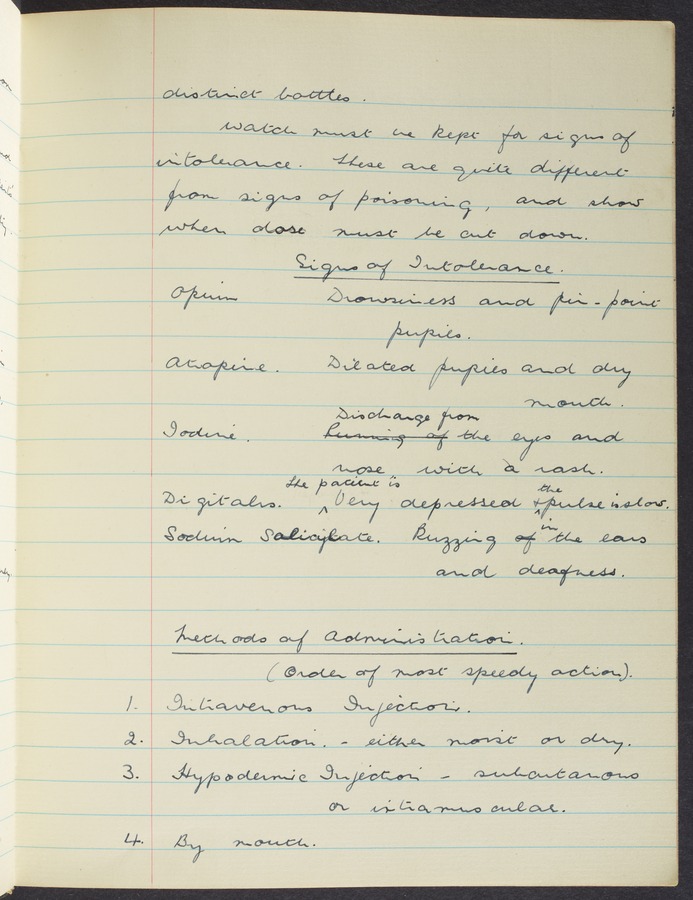 distinct bottles.
Watch must be kept for signs of
intolerance. These are quite different
from signs of poisoning, and show
when dose must be cut down.
Signs of Intolerance.
Opium Drowsiness and pin-point
pupils.
Atropine. Dilated pupils and dry
mouth.
Discharge from
Iodine. Running of the eyes and
nose with a rash.
the patient is the
Digitalis. Very depressed & pulse is slow.
in
Sodium Salicylate. Buzzing of the ears
and deafness.
Methods of Administration.
(Order of most speedy action).
1. Intravenous Injection.
2. Inhalation. - either moist or dry.
3. Hypodermic Injection - subcutanous
or intramuscular.
4. By mouth.